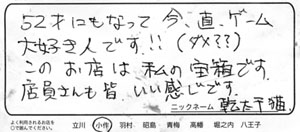 52才にもなって 今、直、ゲーム
大好き人です!! (ダメ???)
このお店は 私の宝箱です。
店員さんも皆 いい感じです。
ニックネーム 乾太平猫
よく利用されるお店を
○で囲んでください。
立川 小作 羽村 昭島 青梅 高幡 堀之内 八王子